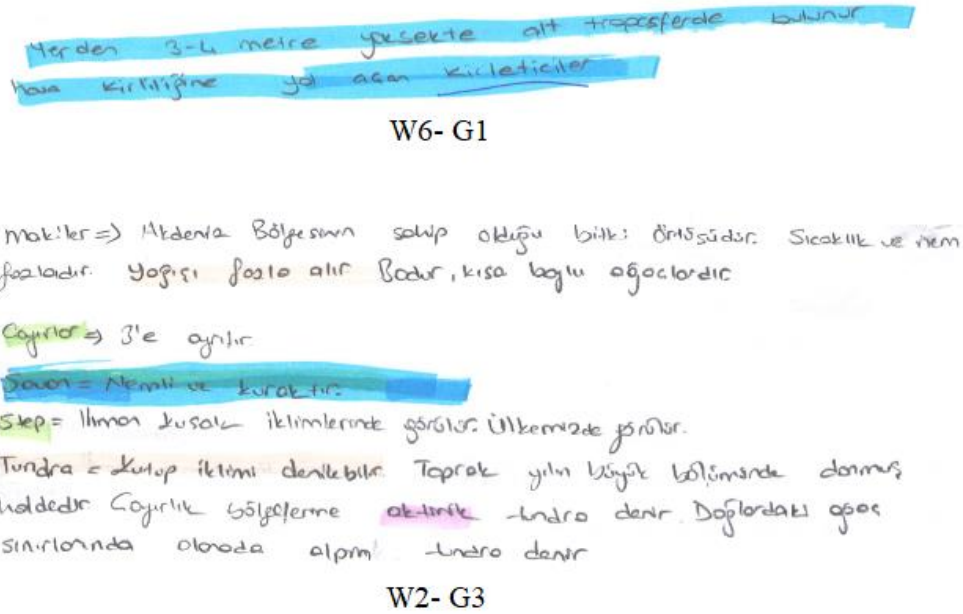 Yerden 3-4 metre yüksekte alt troposferde bulunur
hava kirliliğine yol açan kirleticiler
W6- G1
Makiler => Akdeniz Bölgesinin sahip olduğu bitki örtüsüdür. Sıcaklık ve nem
fazladır. Yağışı fazla alır Bodur, kısa boylu ağaçlardır
Çayırlar => 3'e ayrılır.
Savan = Nemli ve kuraktır.
Step = Ilıman kuşak iklimlerinde görülür. Ülkemizde görülür.
Tundra = Kutup iklimi denilebilir. Toprak yılın büyük bölümünde donmuş
haldedir Çayırlık bölgelerine aktinik tundra denir. Dağlardaki ağaç
sınırlarında olanada alpin tundra denir
W2- G3